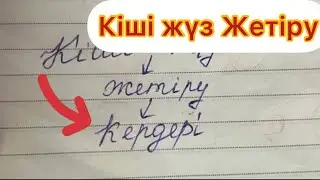 Кіші жүз Жетіру
Кіші
жетіру
Кердері